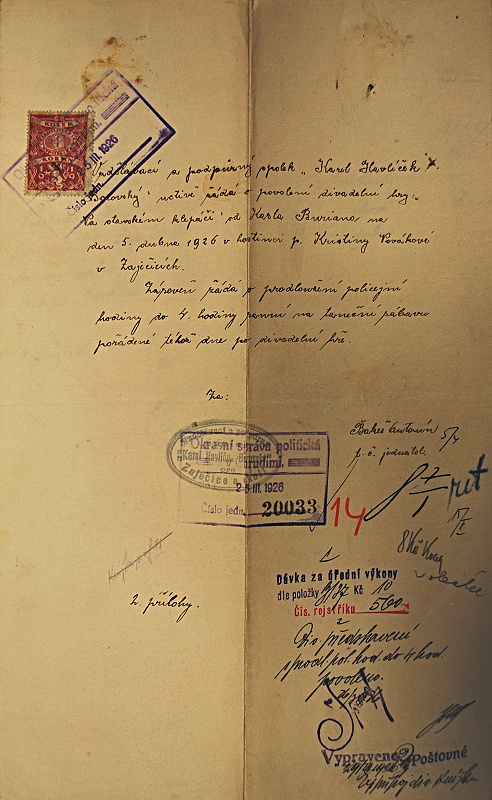 5 III. 1926
Číslo jedn.
KORUNA
KORUNY
Vzdělávací a podpůrný spolek „Karel Havlíček
Borovský" uctivě žádá o povolení divadelní hry:
"Na stavském klepáči" od Karla Buriana na
den 5. dubna 1926 v hostinci p. Kristiny Novákové
v Zaječicích.
Zároveň žádá o prodloužení policejní
hodiny do 4. hodiny ranní na taneční zábavu
pořádané téhož dne po divadelní hře.
Za:
Okresní správa politická
v Chrudimi.
Karel Havlíček Borovský
pro
Zaječice a okolí
25 III. 1926
Číslo jedn. 20033
Bakeš Antonín
t. č. jednatel.
14
ret
8 Kč
Dávka za úřední výkony
dle položky 9/37 Kč 10
Čís. rejstříku 560
2. přílohy.
představení
hod. do 4 hod.
povoleno.
Vypraveno Poštovné